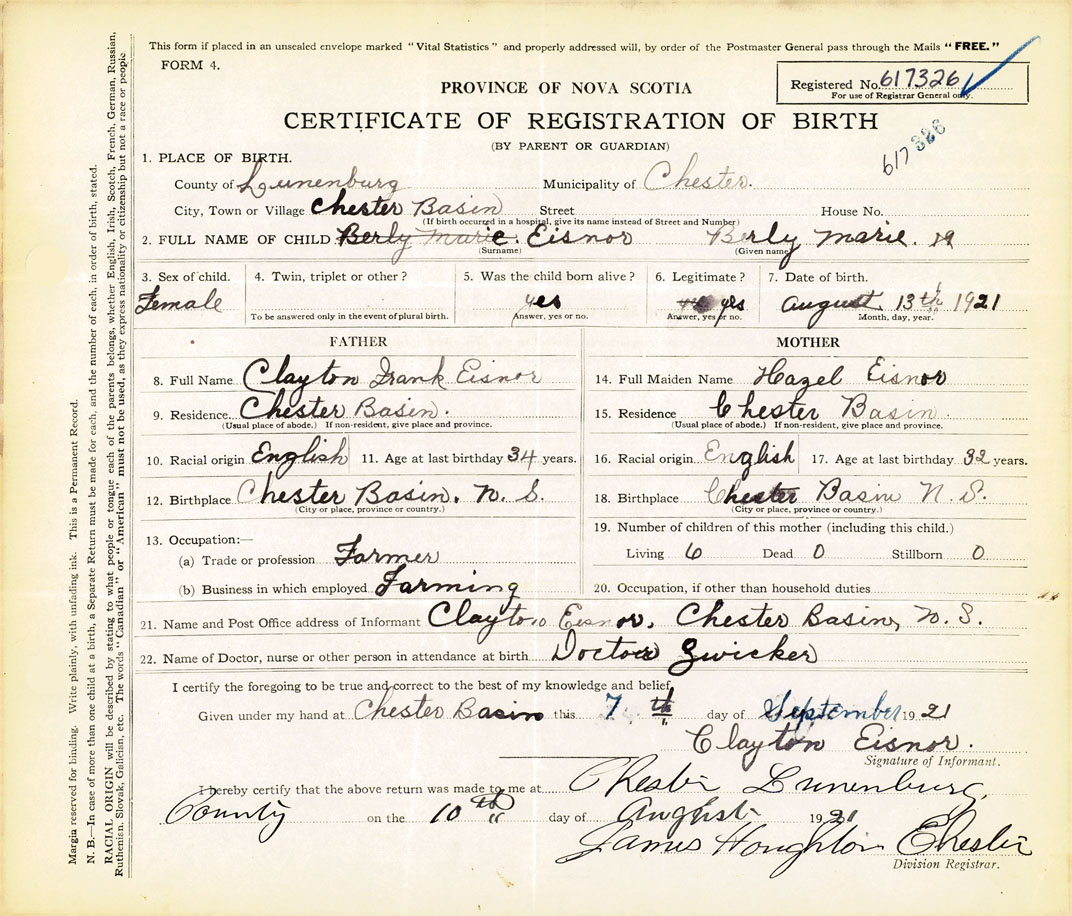 This form if placed in an unsealed envelope marked "Vital Statistics" and properly addressed will, by order of the Postmaster General pass through the Mails "FREE."
FORM 4.
Registered No. 617326
For use of Registrar General only.
PROVINCE OF NOVA SCOTIA
CERTIFICATE OF REGISTRATION OF BIRTH
(BY PARENT OR GUARDIAN)
617326
1. PLACE OF BIRTH.
County of Lunenburg Municipality of Chester.
City, Town or Village Chester Basin Street House No.
(If birth occurred in a hospital, give its name instead of Street and Number)
2. FULL NAME OF CHILD Berly Marie. Eisnor Berly Marie.
(Surname) (Given name)
3. Sex of child. 4. Twin, triplet or other? 5. Was the child born alive? 6. Legitimate? 7. Date of birth.
Female yes yes August 13th 1921
To be answered only in the event of plural birth. Answer, yes or no. Answer, yes or no. Month, day, year.
FATHER MOTHER
8. Full Name Clayton Frank Eisnor 14. Full Maiden Name Hazel Eisnor
9. Residence Chester Basin. 15. Residence Chester Basin.
(Usual place of abode.) If non-resident, give place and province. (Usual place of abode.) If non-resident, give place and province.
10. Racial origin English 11. Age at last birthday 34 years. 16. Racial origin English 17. Age at last birthday 32 years.
12. Birthplace Chester Basin. N. S. 18. Birthplace Chester Basin N. S.
(City or place, province or country.) (City or place, province or country.)
13. Occupation:— 19. Number of children of this mother (including this child.)
(a) Trade or profession Farmer Living 6 Dead 0 Stillborn 0
(b) Business in which employed Farming 20. Occupation, if other than household duties
21. Name and Post Office address of Informant Clayton Eisnor. Chester Basin, N. S.
22. Name of Doctor, nurse or other person in attendance at birth Doctor Zwicker
I certify the foregoing to be true and correct to the best of my knowledge and belief,
Given under my hand at Chester Basin this 7th day of September 1921
Clayton Eisnor.
Signature of Informant.
I hereby certify that the above return was made to me at Chester Lunenburg
County on the 10th day of August 1921
James Houghton Chester
Division Registrar.
Margin reserved for binding. Write plainly, with unfading ink. This is a Permanent Record.
N. B.—In case of more than one child at a birth, a Separate Return must be made for each, and the number of each, in order of birth, stated.
RACIAL ORIGIN will be described by stating to what people or tongue each of the parents belongs, whether English, Irish, Scotch, French, German, Russian,
Ruthenian, Slovak, Galician, etc. The words "Canadian" or "American" must not be used, as they express nationality or citizenship but not a race or people